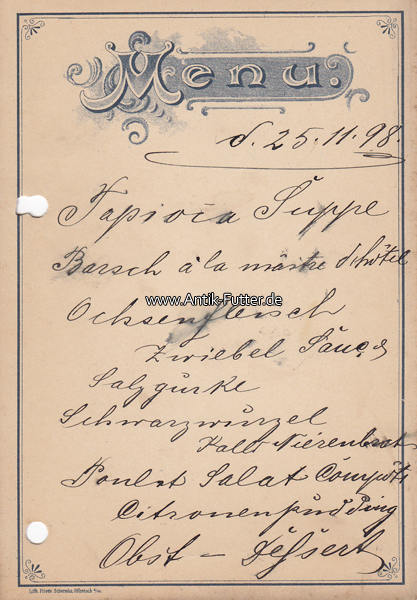 Menu.
d. 25.11.98.
Tapioca Suppe
Barsch à la maître d'hôtel
www.Antik-Futter.de
Ochsenfleisch
Zwiebel Sauce
Salzgurke
Schwarzwurzel
Kalbs Nierenbrat
Poulet Salat Compôte
Citronenpudding
Obst – Dessert